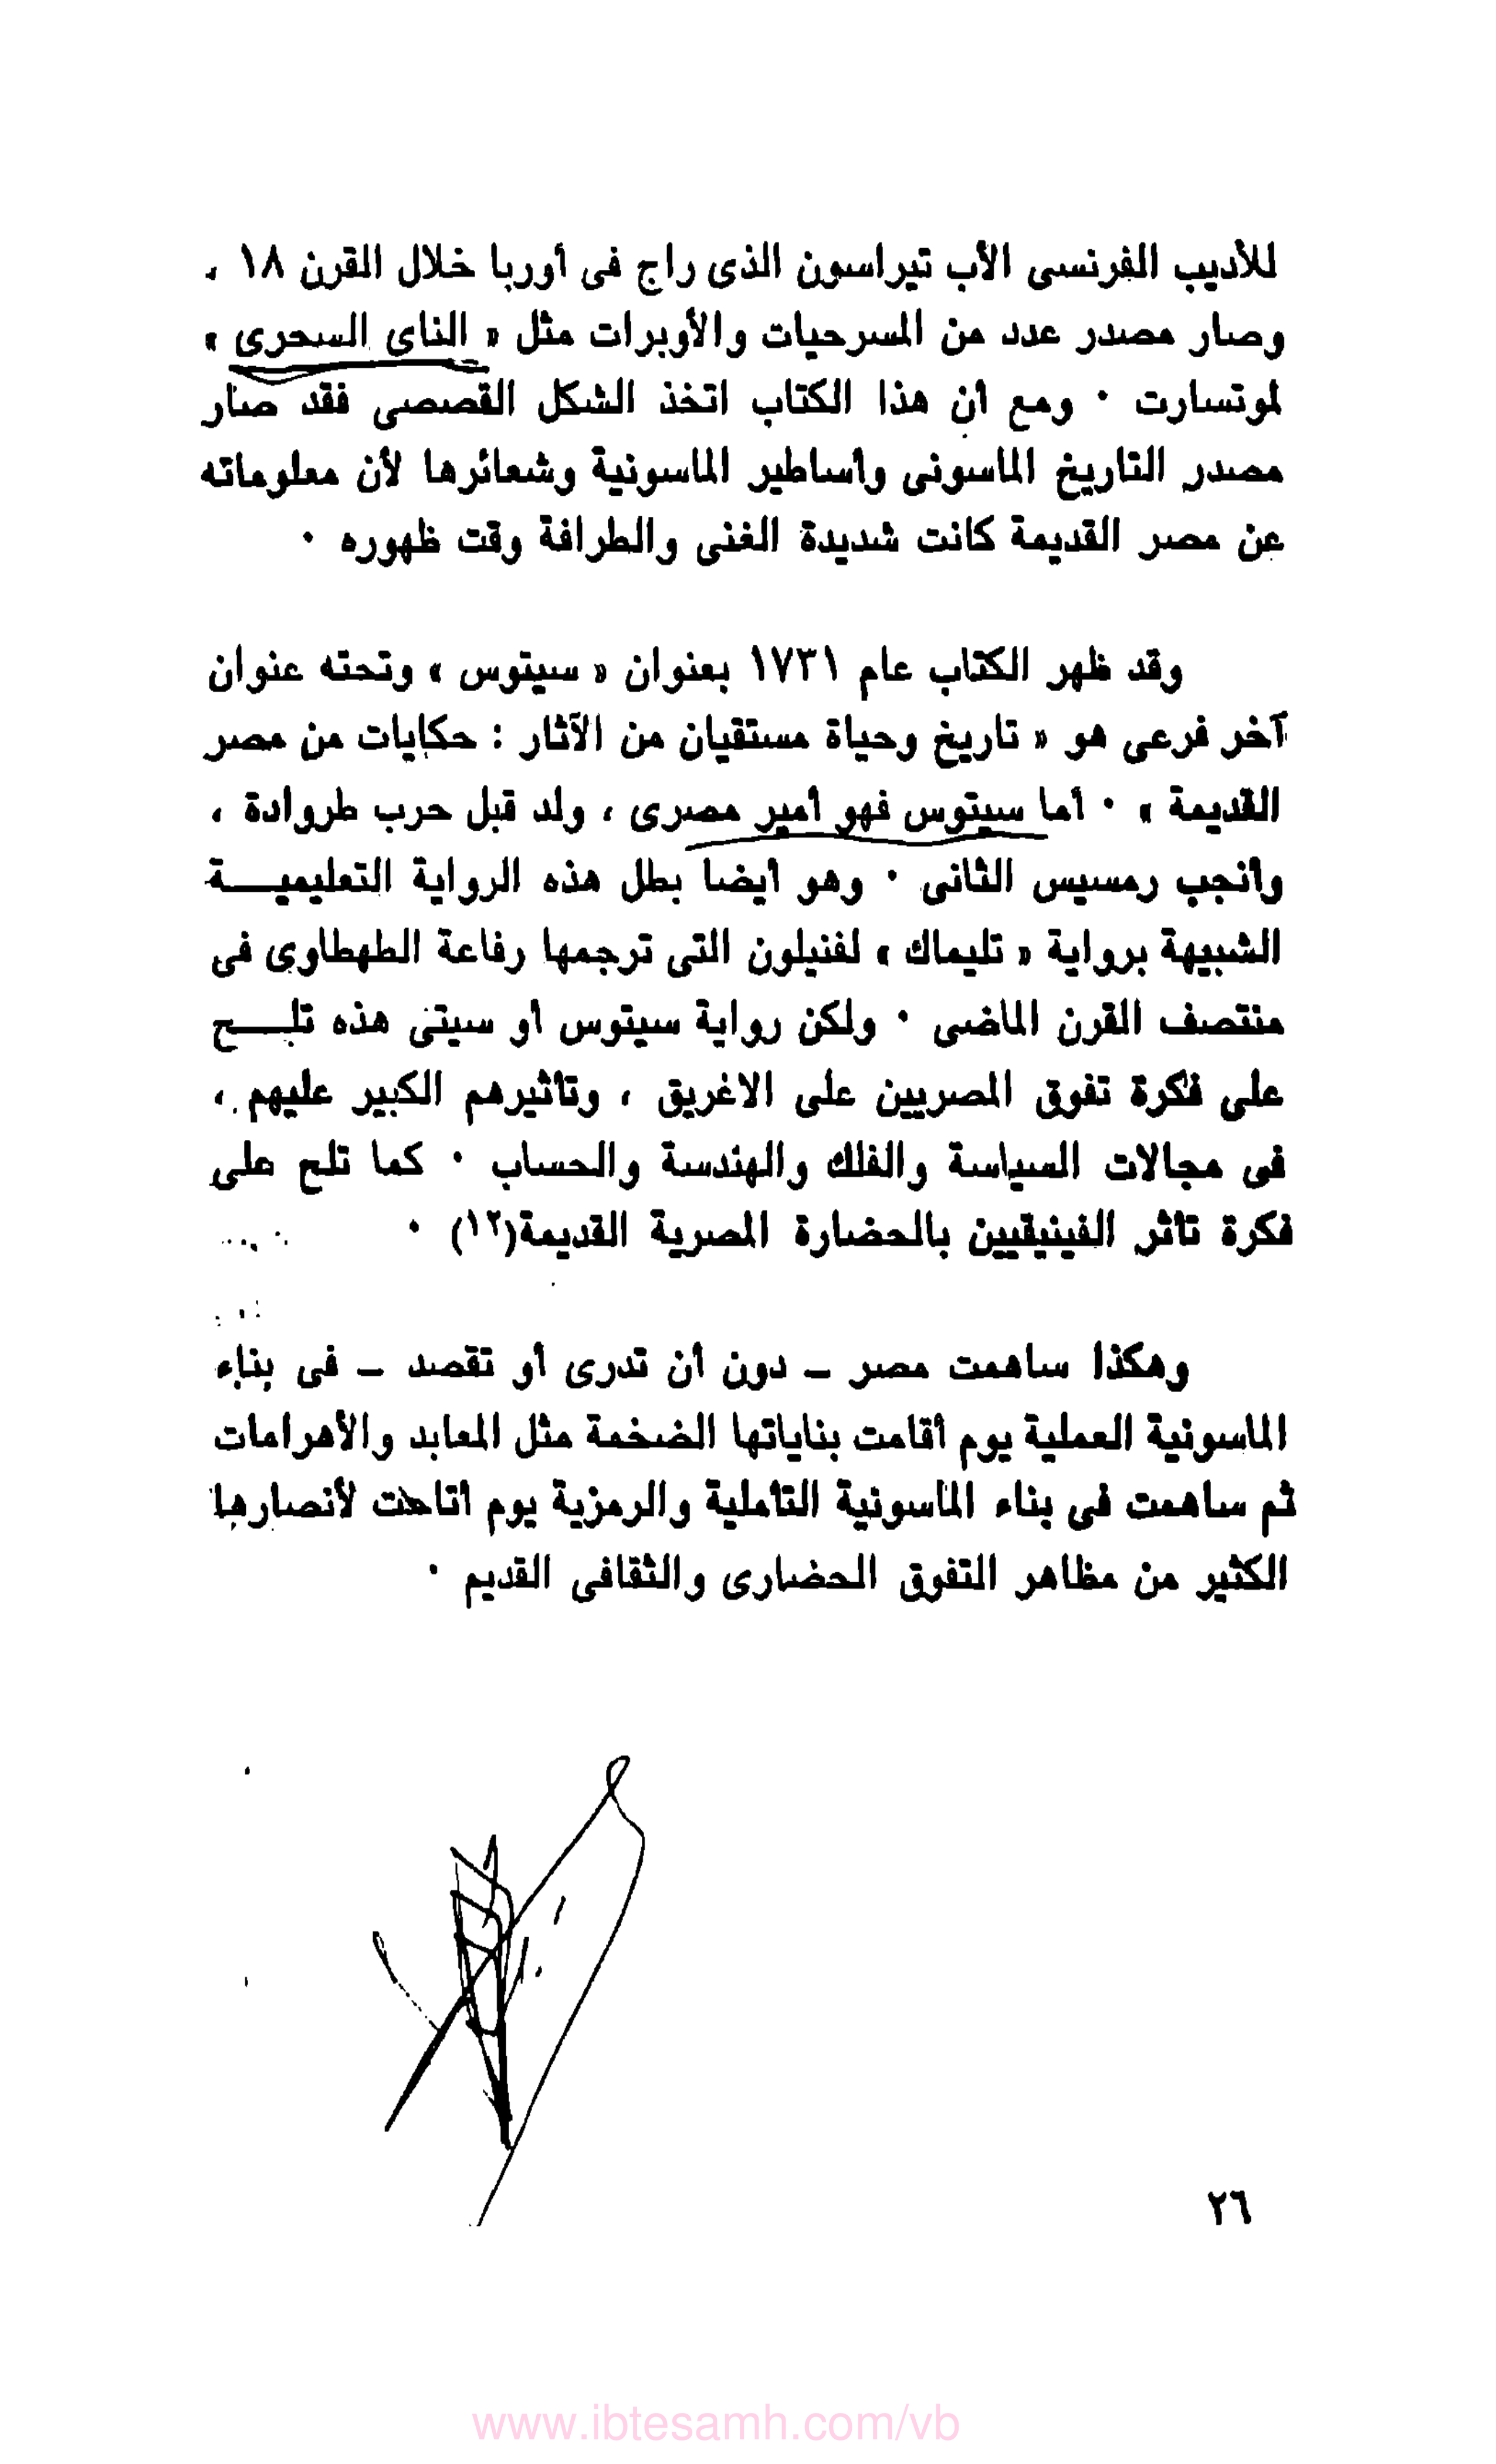 للأديب الفرنسى الأب تيراسون الذى راج فى أوربا خلال القرن ١٨ ،
وصار مصدر عدد من المسرحيات والأوبرات مثل « الناى السحرى »
لموتسارت ٠ ومع أن هذا الكتاب اتخذ الشكل القصصى فقد صار
مصدر التاريخ الماسونى وأساطير الماسونية وشعائرها لأن معلوماته
عن مصر القديمة كانت شديدة الغنى والطرافة وقت ظهوره ٠
وقد ظهر الكتاب عام ١٧٣١ بعنوان « سيتوس » وتحته عنوان
آخر فرعى هو « تاريخ وحياة مستقيان من الآثار : حكايات من مصر
القديمة » ٠ أما سيتوس فهو أمير مصرى ، ولد قبل حرب طروادة ،
وأنجب رمسيس الثانى ٠ وهو أيضا بطل هذه الرواية التعليميـــة
الشبيهة برواية « تليماك » لفنيلون التى ترجمها رفاعة الطهطاوى فى
منتصف القرن الماضى ٠ ولكن رواية سيتوس أو سيتى هذه تلـــح
على فكرة تفوق المصريين على الاغريق ، وتأثيرهم الكبير عليهم ،
فى مجالات السياسة والفلك والهندسة والحساب ٠ كما تلح على
فكرة تأثر الفينيقيين بالحضارة المصرية القديمة(١٢) ٠
وهكذا ساهمت مصر – دون أن تدرى أو تقصد – فى بناء
الماسونية العملية يوم أقامت بناياتها الضخمة مثل المعابد والأهرامات
ثم ساهمت فى بناء الماسونية التأملية والرمزية يوم أتاحت لأنصارها
الكثير من مظاهر التفوق الحضارى والثقافى القديم ٠
٢٦
www.ibtesamh.com/vb